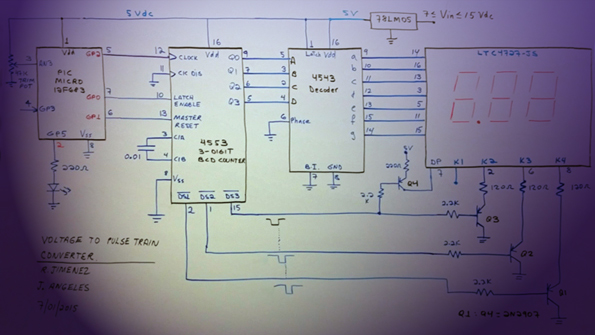 5 Vdc
5V
78LM05
7 ≤ Vin ≤ 15 Vdc
1
Vdd
PIC
MICRO
12F683
GP2
5
GP0
7
GP1
6
GP3
4
GP5
Vss
2
8
220Ω
16
Vdd
12
CLOCK
11
CK DIS
10
LATCH
ENABLE
13
MASTER
RESET
3
C1A
0.01
4
C1B
8
Vss
4553
3-DIGIT
BCD COUNTER
Q0
9
Q1
7
Q2
6
Q3
5
DS1
DS2
DS3
2
1
15
1
16
Latch
Vdd
5
A
3
B
2
C
4
D
6
Phase
4543
Decoder
BI
GND
7
8
a
9
14
b
10
16
c
11
13
d
12
3
e
13
5
f
15
11
g
14
15
LTC4727-JS
DP
K1
K2
K3
K4
7
6
8
5V
220Ω
Q4
2.2
K
120Ω
120Ω
120Ω
2.2K
Q3
2.2K
Q2
2.2K
Q1
Q1:Q4 = 2N2907
VOLTAGE TO PULSE TRAIN
CONVERTER
R. JIMENEZ
J. ANGELES
7/01/2015